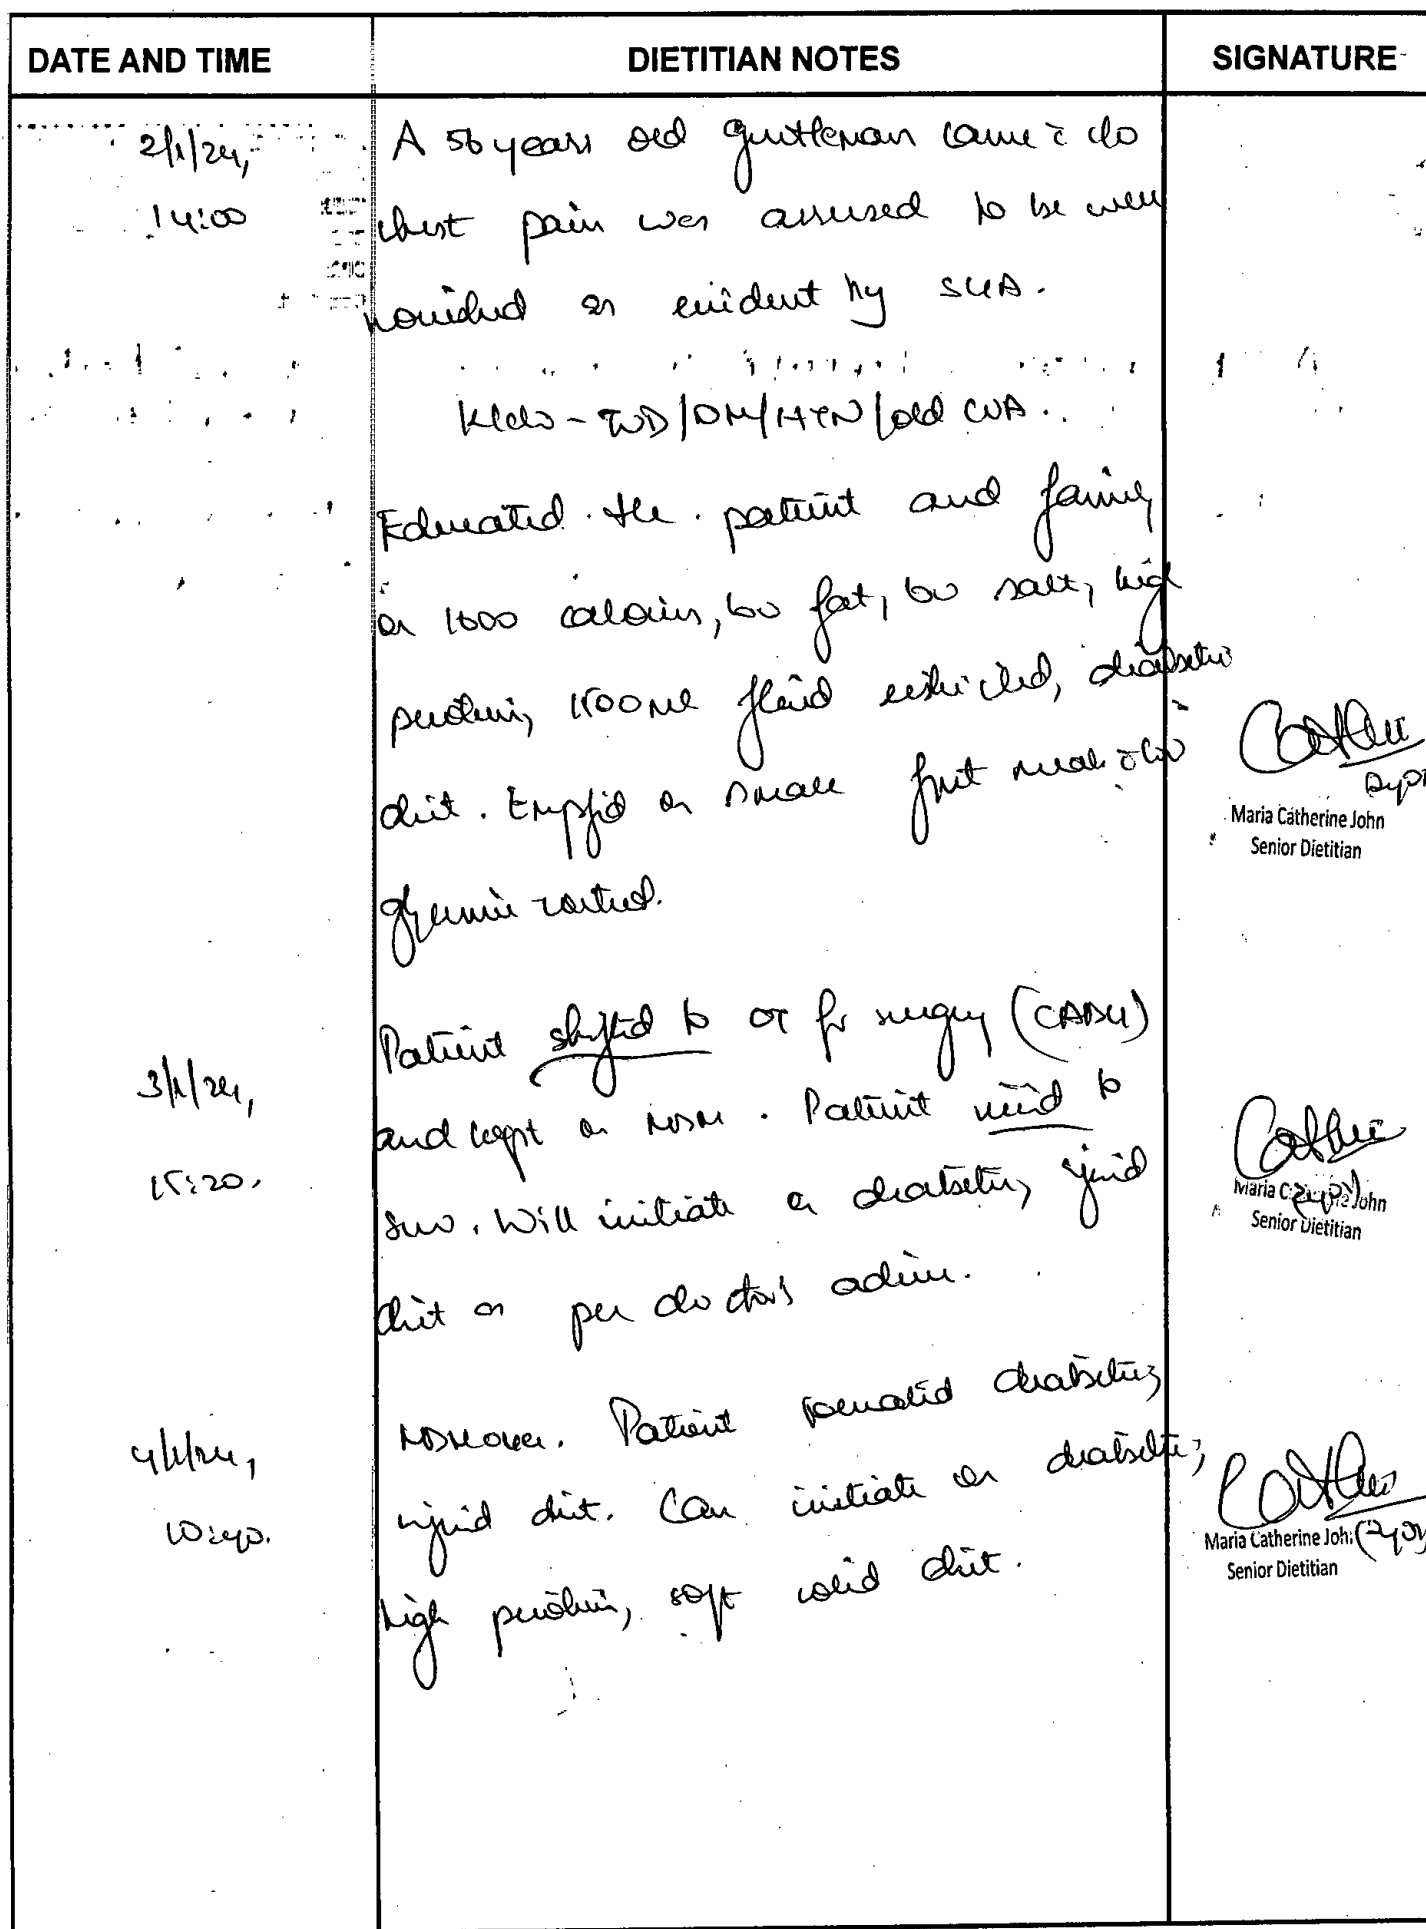 DATE AND TIME DIETITIAN NOTES SIGNATURE
2/1/24, A 56 years old gentleman came c̄ c/o
14:00 chest pain was assessed to be well
nourished as evident by SGA.
K/c/o - IHD/DM/HTN/old CVA.
Educated the patient and family
on 1600 calories, low fat, low salt, high
protein, 1500ml fluid restricted, diabetic
diet. Emps'd on small freq't meals c̄ low
glycemic
Maria Catherine John
Senior Dietitian
3/1/24, Patient shifted to OT for surgery (CABG)
15:20. and kept on NBM. Patient to
Will initiate on diabetic, liquid
diet as per doctor's advice.
Maria Catherine John
Senior Dietitian
4/1/24, NBM over. Patient tolerated diabetic,
10:40. liquid diet. Can initiate on diabetic,
high protein, soft solid diet.
Maria Catherine John
Senior Dietitian